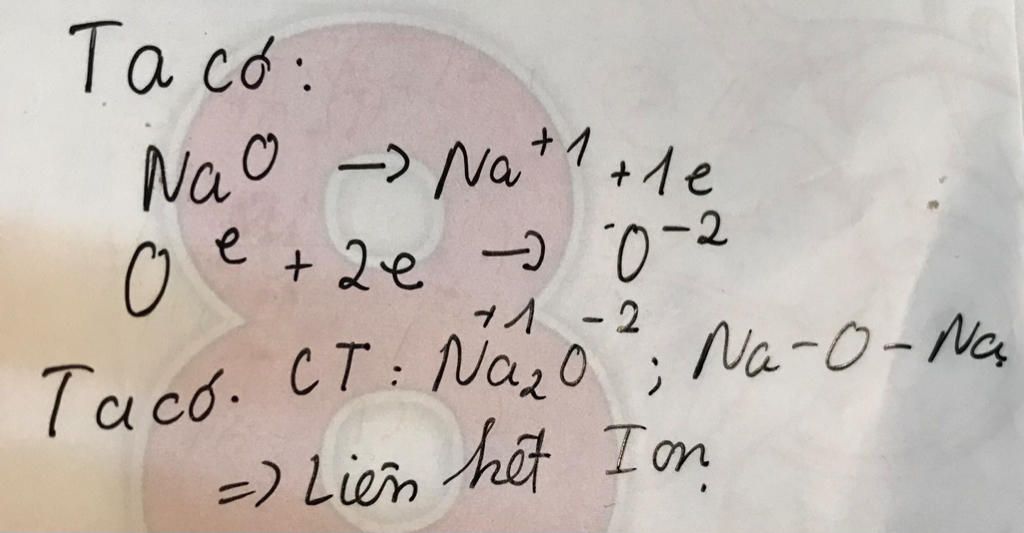 Ta có:
Na⁰ → Na⁺¹ + 1e
Oᵉ + 2e → O⁻²
+1 -2
Ta có. CT: Na₂O ; Na-O-Na
=> Liên kết Ion.